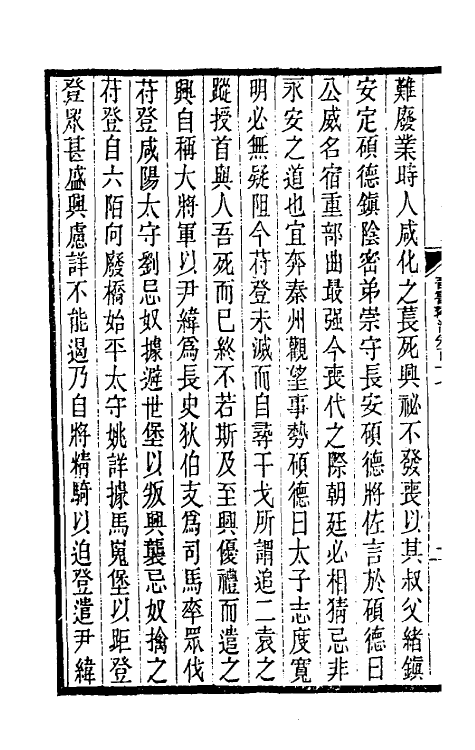 難廢業時人咸化之萇死興祕不發喪以其叔父緒鎮
安定碩德鎮陰密弟崇守長安碩德將佐言於碩德曰
公威名宿重部曲最强今喪代之際朝廷必相猜忌非
永安之道也宜奔秦州觀望事勢碩德曰太子志度寬
明必無疑阻今苻登未滅而自尋干戈所謂追二袁之
蹤授首與人吾死而已終不若斯及至興優禮而遣之
興自稱大將軍以尹緯爲長史狄伯支爲司馬率眾伐
苻登咸陽太守劉忌奴據避世堡以叛興襲忌奴擒之
苻登自六陌向廢橋始平太守姚詳據馬嵬堡以距登
登眾甚盛興慮詳不能遏乃自將精騎以迫登遣尹緯